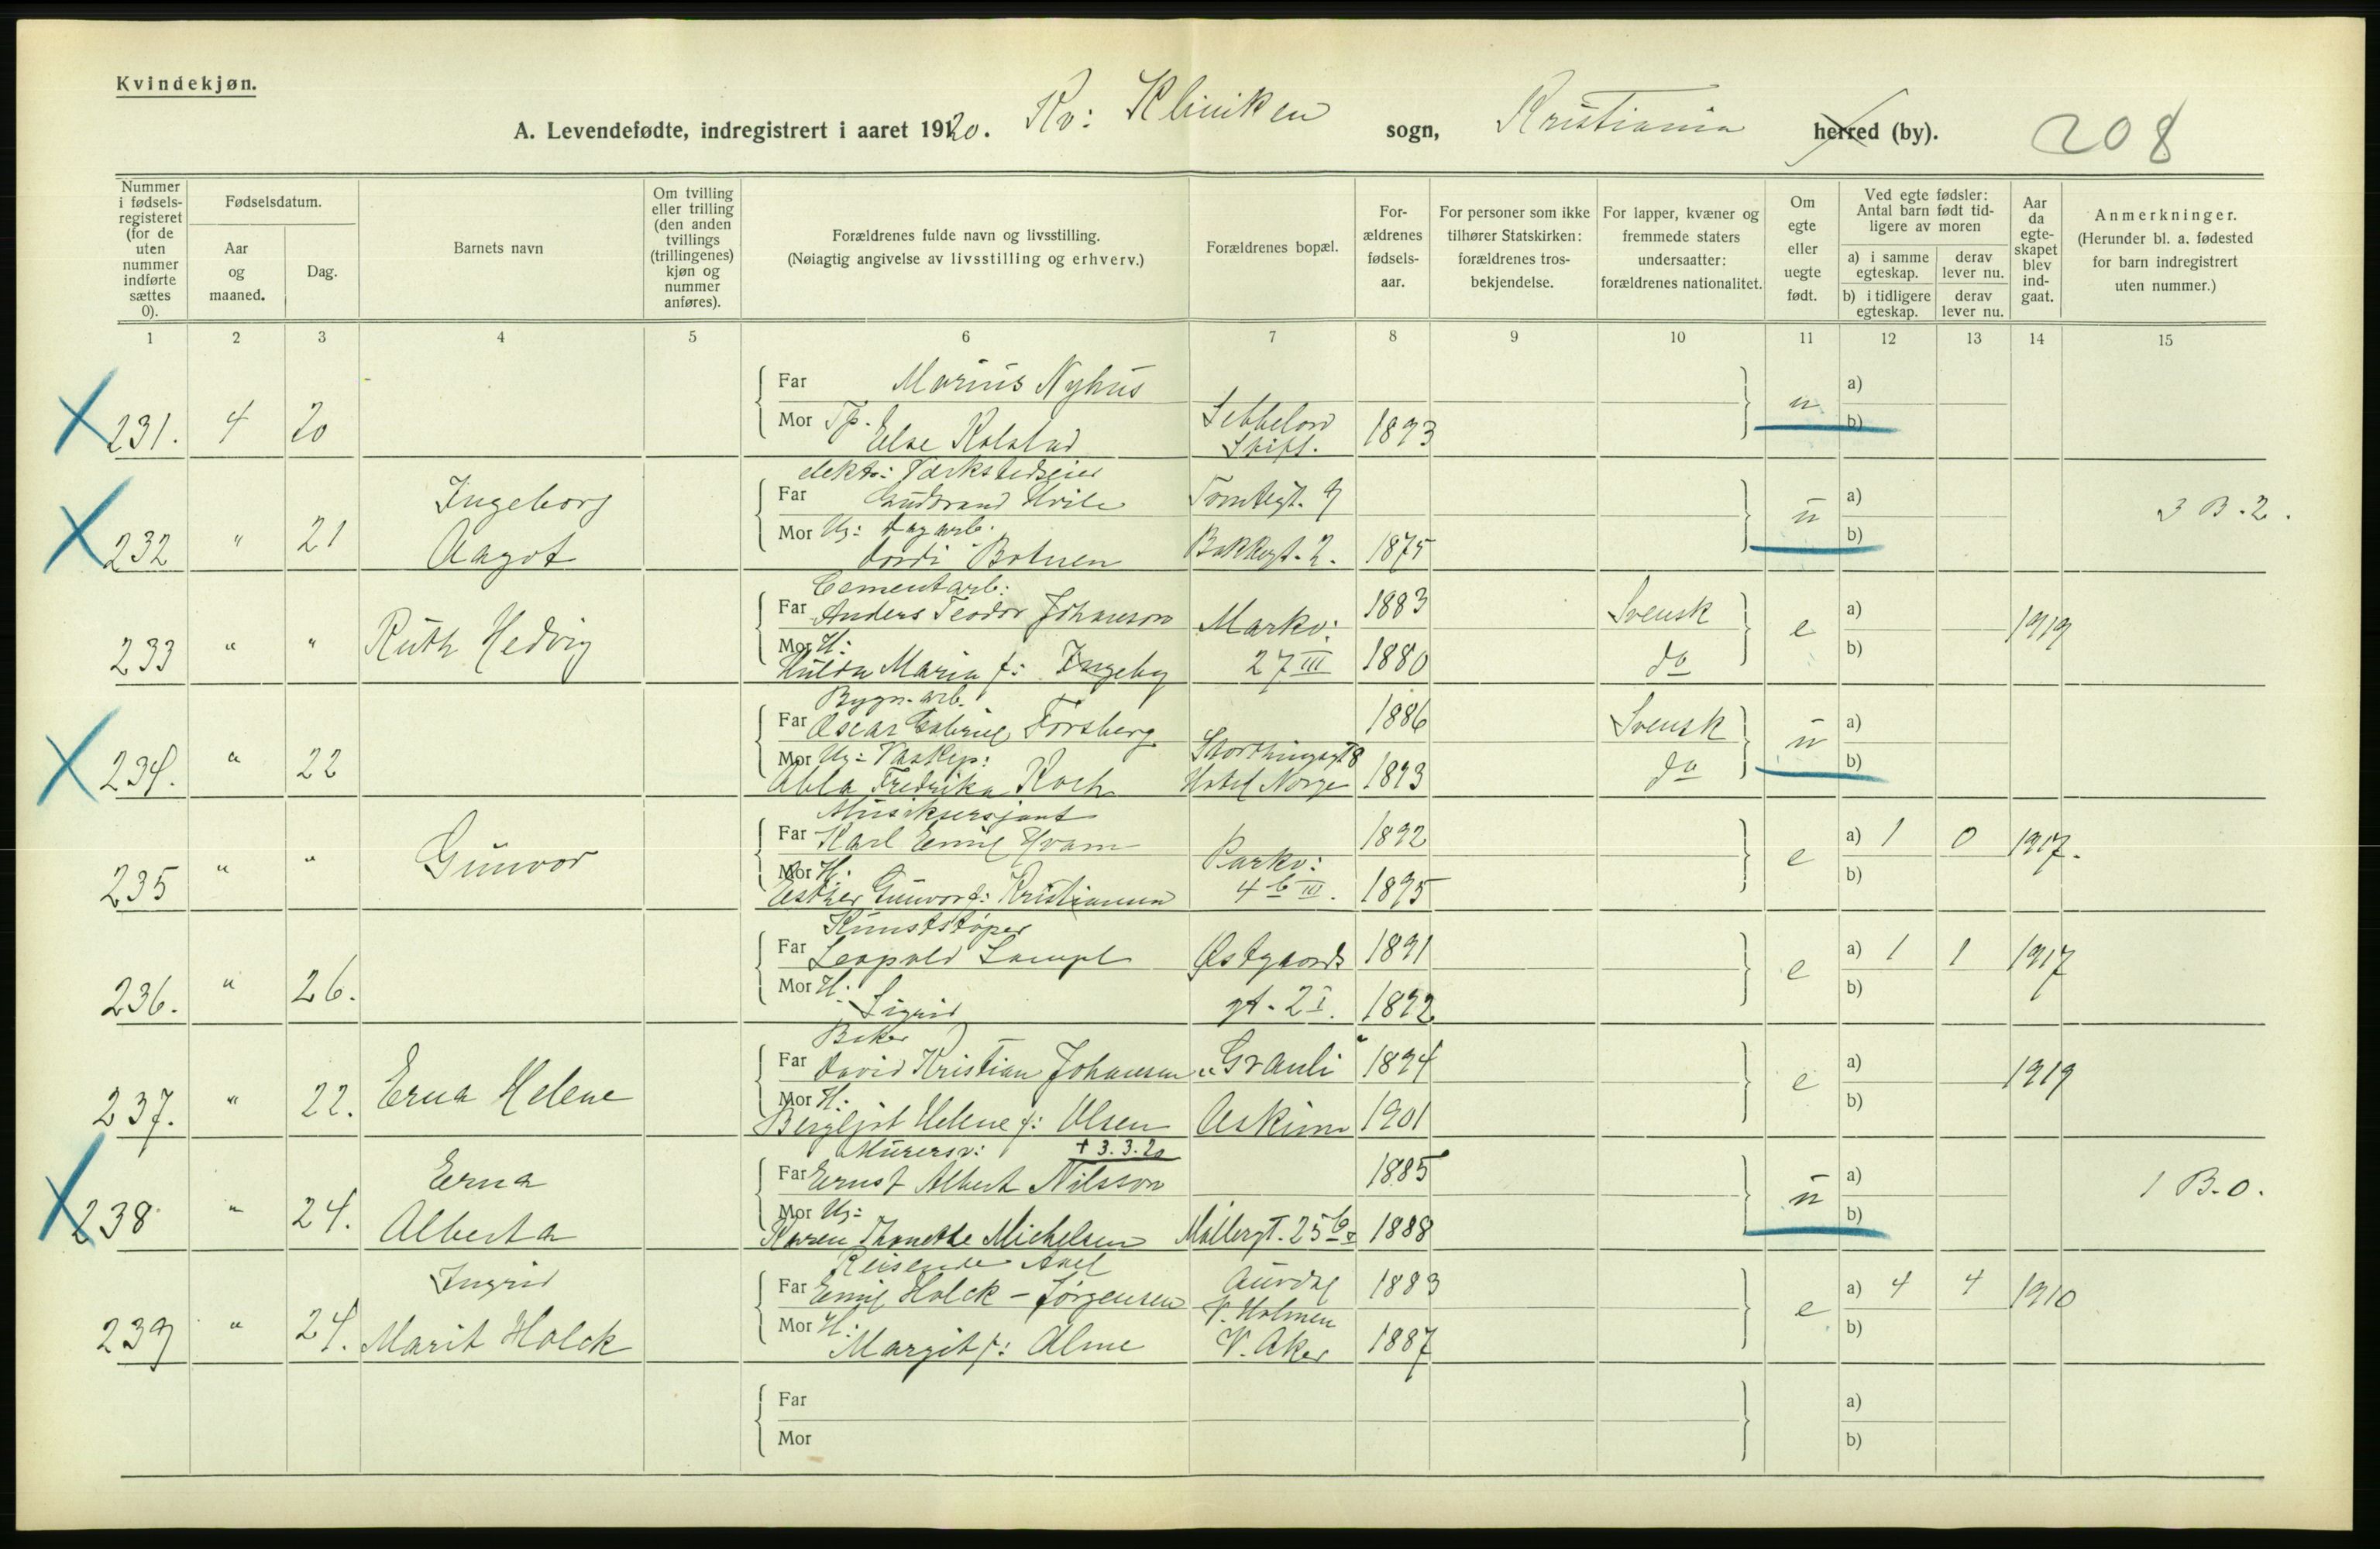 Kvindekjøn.
A. Levendefødte, indregistrert i aaret 1920. Kv: Kliniken sogn, Kristiania herred (by). 208
Nummer i fødselsregisteret (for de uten nummer indførte sættes 0).
Fødselsdatum.
Aar og maaned.
Dag.
Barnets navn
Om tvilling eller trilling (den anden tvillings (trillingenes) kjøn og nummer anføres).
Forældrenes fulde navn og livsstilling.
(Nøiagtig angivelse av livsstilling og erhverv.)
Forældrenes bopæl.
Forældrenes fødselsaar.
For personer som ikke tilhører Statskirken: forældrenes trosbekjendelse.
For lapper, kvæner og fremmede staters undersaatter: forældrenes nationalitet.
Om egte eller uegte født.
Ved egte fødsler: Antal barn født tidligere av moren
a) i samme egteskap. derav lever nu.
b) i tidligere egteskap. derav lever nu.
Aar da egteskapet blev indgaat.
Anmerkninger.
(Herunder bl. a. fødested for barn indregistrert uten nummer.)
1 2 3 4 5 6 7 8 9 10 11 12 13 14 15
Far Marius Nyhus a)
231. 4 20 Mor Tp. Else Kolstad Sebbelow Stift. 1893 u b)
elektr: Værkstedseier
Ingeborg Far Gudbrand Hvile Tomtegt. 9 a) 3 B. 2.
232 " 21 Aagot Mor Ug: Dagarb. Bakkegt. 2. 1875 u b)
Cementarb:
Far Anders Teodor Johanson Markv: 1883 Svensk a)
233 " " Ruth Hedvig Mor H: Hulda Maria f: Ingeby 27 III 1880 do e b) 1919
Bygn. arb.
Far Oscar Gabriel Forsberg 1886 Svensk a)
234. " 22 Mor Ug: Fredrika Koch Storthingsgt 8 Hotel Norge 1893 do u b)
Far Karl Emil Hvam Parkv: 1892 a) 1 0 1917.
235 " " Gunvor Mor H: Esther Gunvor f: Kristiansen 4 b III. 1895 e b)
Kunststøper
Far Leopold Lampl Østgaards 1891 a) 1 1 1917
236. " 26. Mor H: Sigrid gt. 2 I. 1892 e b)
Baker
Far David Kristian Johansen "Grauli" 1894 a)
237. " 22. Erna Helene Mor H: Bergljot Helene f: Olsen Askim 1901 e b) 1919
Murersv: † 3.3.20
Erna Far Ernst Albert Nilsson 1885 a) 1 B. 0.
238 " 24. Alberta Mor Ug: Karen Thonette Michelsen Møllergt. 25 b 1888 u b)
Reisende Axel
Ingrid Far Emil Holck - Jørgensen V. Holmen 1883 a) 4 4 1910
239 " 24. Marit Holck Mor H: Margit f: Alme V. Aker 1887 e b)
Far a)
Mor b)